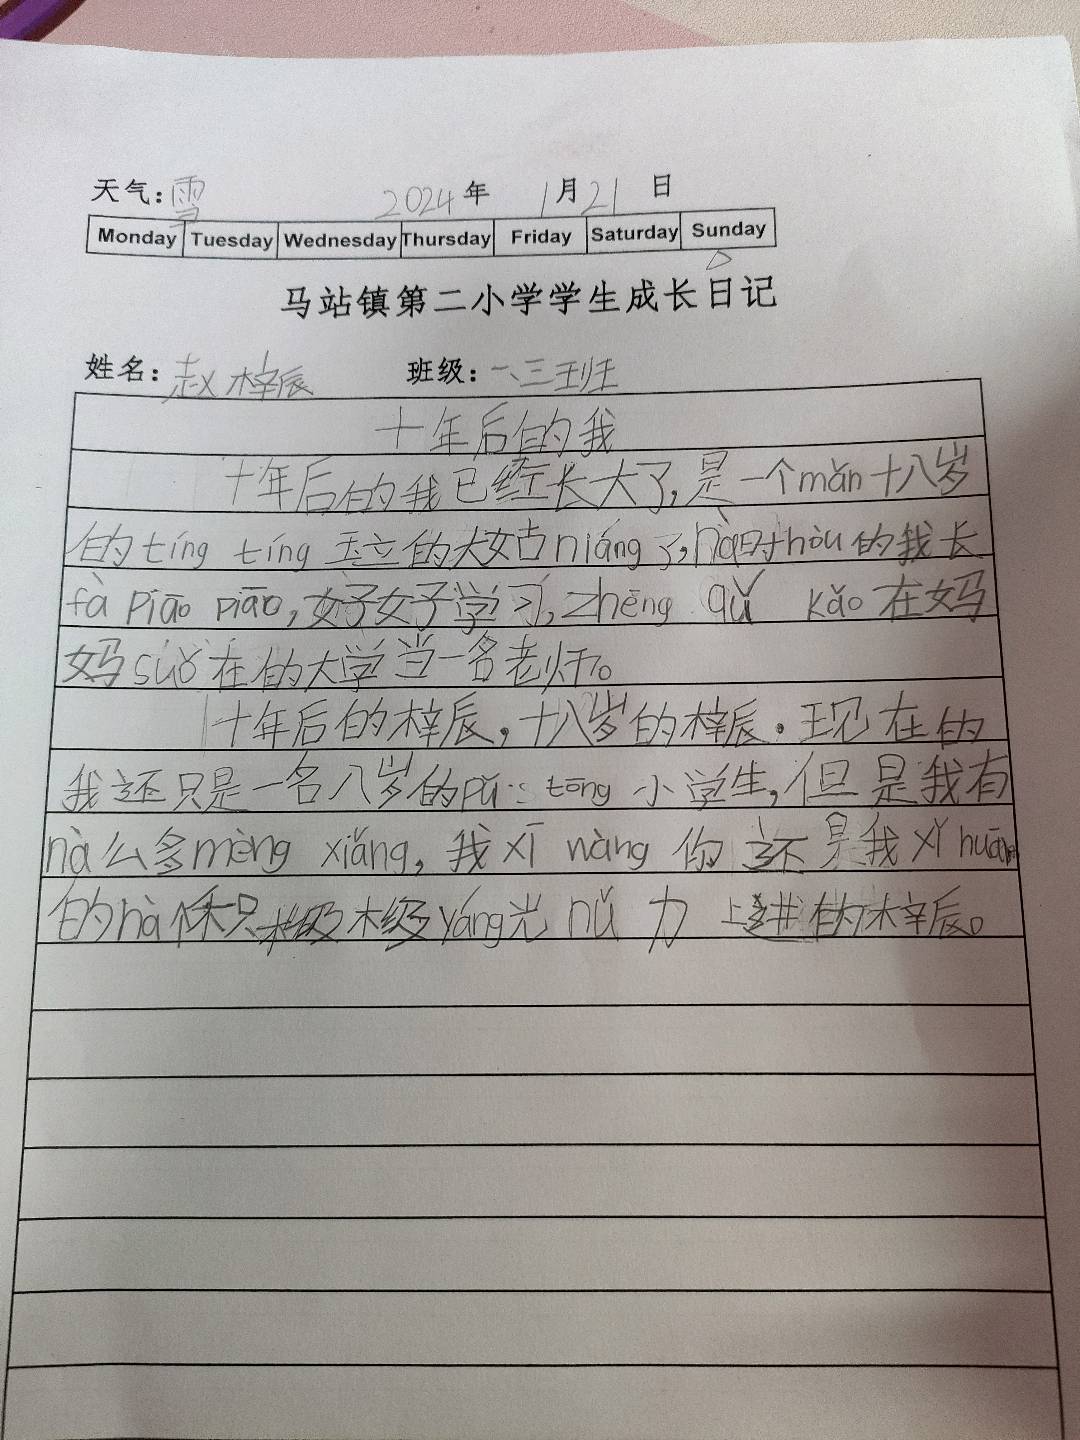 天气：雪 2024年 1月21日
Monday Tuesday Wednesday Thursday Friday Saturday Sunday
马站镇第二小学学生成长日记
姓名：赵梓辰 班级：一、三班
十年后的我
十年后的我已经长大了，是一个mǎn十八岁
的tíng tíng 玉立的大姑niáng了，nà时hòu的我长
fà piāo piāo，好好学习，zhēng qǔ kǎo在妈
妈suǒ在的大学当一名老师。
十年后的梓辰，十八岁的梓辰。现在的
我还只是一名八岁的pǔ tōng 小学生，但是我有
nà么多mèng xiǎng，我xī wàng 你还是我xǐ huān
的nà个积极yáng光 nǔ 力 上进的梓辰。